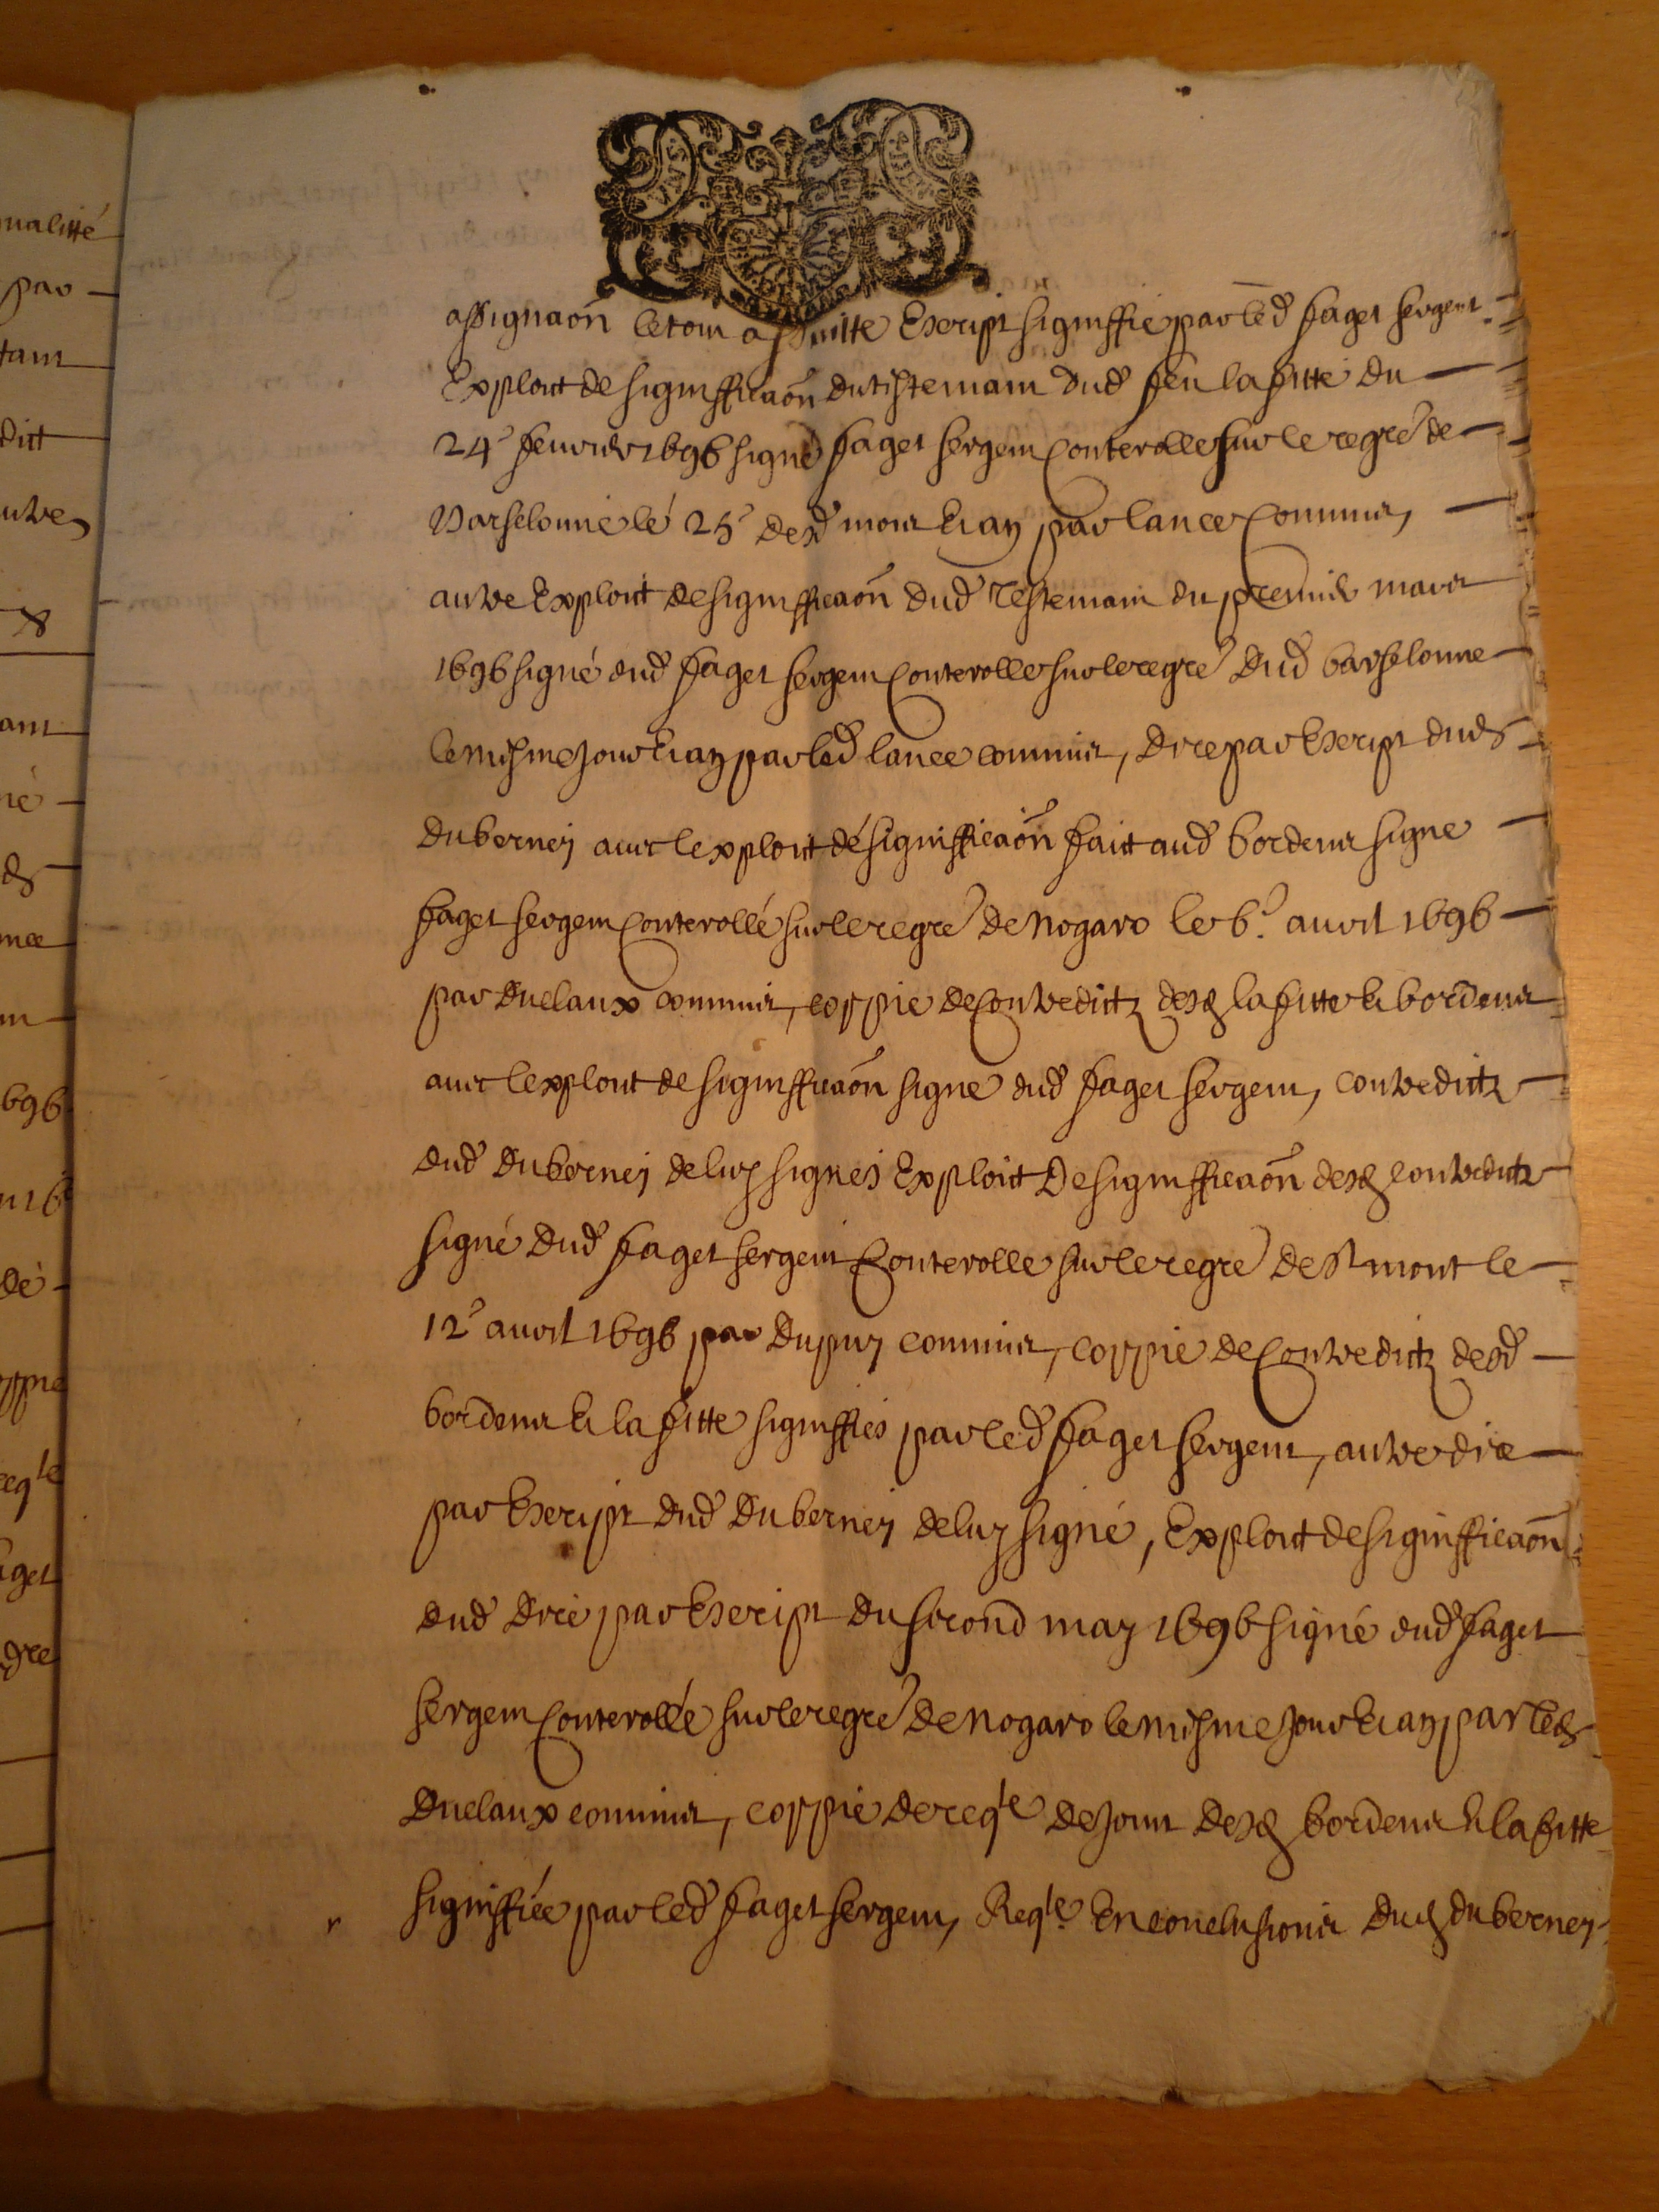 nalitté
par
tant
dict
autre
ant
ié
696
ppie
reqte
aget
dre
assignaon le tout a suitte Escript signiffié par led faget sergent
Exploit de signifficaon du testemant dud feu lafitte du
24e feurier 1696 signé faget sergent Conterollé sur le regre de
Barselonne le 25e desd mois Et an par lance Commis,
autre Exploit de signifficaon dud Testemant du premier mars
1696 signé dud faget sergent Conterollé sur le regre dud barselonne
le mesme Jour Et an par led lance commis, dire par Escript dud
duberney auec lexploit de signifficaon faict aud bordenis signe
faget sergent Conterollé sur le regre de nogaro le 6e. auril 1696
par duclaux commis, coppie de Contredictz desd lafitte Et bordenis
auec lexploit de signifficaon signe dud faget sergent, contredictz
dud duberney de luy signés Exploit de signifficaon desd contredictz
signé dud faget sergent Conterollé sur le regre de St mont le
12e auril 1696 par dupuy commis, coppie de Contredictz desd
bordenis Et lafitte signiffiés par led faget sergent, autre dire
par Escript dud duberney de luy signé, Exploit de signifficaon
dud dire par Escript du second may 1696 signé dud faget
sergent Conterollé sur le regre de nogaro le mesme Jour Et an par led
duclaux commis, coppie de reqte de Joint desd bordenis Et lafitte
signiffiée par led faget sergent, Reqte. En conclusions dud duberney